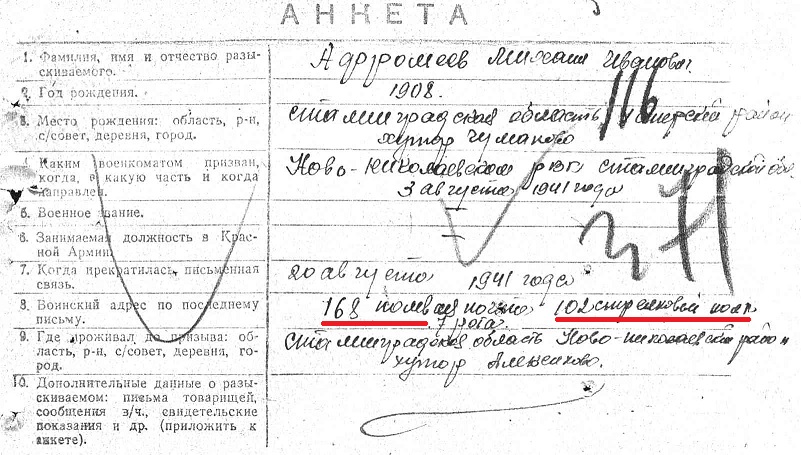 АНКЕТА
1. Фамилия, имя и отчество разы-
скиваемого.
Афромеев Михаил Иванович
2. Год рождения.
1908.
3. Место рождения: область, р-н,
с/совет, деревня, город.
Сталинградская область район
хутор Чумаково
4. Каким военкоматом призван,
когда, в какую часть и когда
направлен.
Ново-Николаевском рвк Сталинградской обл.
3 августа 1941 года
5. Военное звание.
–
6. Занимаемая должность в Крас-
ной Армии.
–
7. Когда прекратилась письменная
связь.
20 августа 1941 года
8. Воинский адрес по последнему
письму.
168 полевая почта 102 стрелковый полк
7 рота.
9. Где проживал до призыва: об-
ласть, р-н, с/совет, деревня, го-
род.
Сталинградская область Ново-Николаевский район
хутор Алексиково.
10. Дополнительные данные о разы-
скиваемом: письма товарищей,
сообщения в/ч., свидетельские
показания и др. (приложить к
анкете).